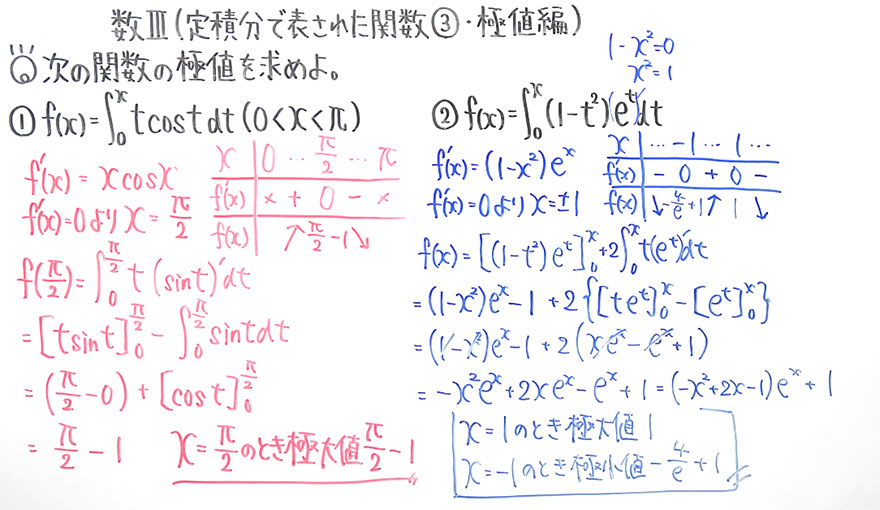 数Ⅲ(定積分で表された関数③・極値編)
次の関数の極値を求めよ。
① f(x)=∫₀ˣ t cos t dt (0<x<π)
f′(x) = x cos x
f′(x)=0より x=π/2
x | 0 … π/2 … π
f′(x) | × + 0 − ×
f(x) | ↗ π/2−1 ↘
f(π/2)=∫₀^(π/2) t (sin t)′dt
=[t sin t]₀^(π/2) − ∫₀^(π/2) sin t dt
=(π/2−0)+[cos t]₀^(π/2)
= π/2 − 1
x=π/2のとき極大値π/2−1
② f(x)=∫₀ˣ (1−t²)(eᵗ)′dt
1−x²=0
x²=1
f′(x)=(1−x²)eˣ
f′(x)=0より x=±1
x | … −1 … 1 …
f′(x) | − 0 + 0 −
f(x) | ↘ −4/e+1 ↗ 1 ↘
f(x)=[(1−t²)eᵗ]₀ˣ+2∫₀ˣ t(eᵗ)′dt
=(1−x²)eˣ−1+2{[teᵗ]₀ˣ−[eᵗ]₀ˣ}
=(1−x²)eˣ−1+2(xeˣ−eˣ+1)
=−x²eˣ+2xeˣ−eˣ+1=(−x²+2x−1)eˣ+1
x=1のとき極大値1
x=−1のとき極小値−4/e+1